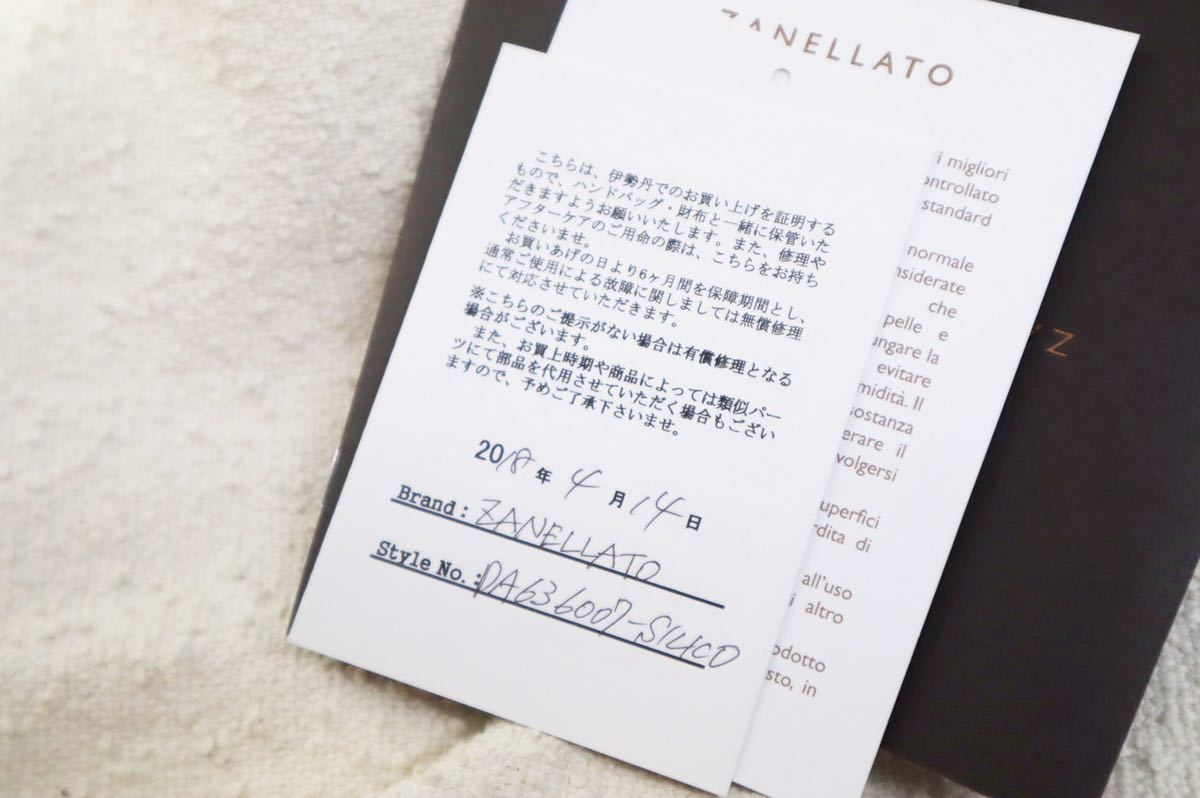 ZANELLATO
こちらは、伊勢丹でのお買い上げを証明する
もので、ハンドバッグ・財布と一緒に保管いた
だきますようお願いいたします。また、修理や
アフターケアのご用命の際は、こちらをお持ち
くださいませ。
お買いあげの日より6ヶ月間を保障期間とし、
通常ご使用による故障に関しましては無償修理
にて対応させていただきます。
※こちらのご提示がない場合は有償修理となる
場合がございます。
また、お買上時期や商品によっては類似パー
ツにて部品を代用させていただく場合もござい
ますので、予めご了承下さいませ。
2018年 4月 14日
Brand: ZANELLATO
Style No.: DA636007-S14CD
i migliori
ontrollato
standard
normale
nsiderate
che
pelle e
ungare la
evitare
midità. Il
sostanza
erare il
volgersi
uperfici
rdita di
all'uso
i altro
odotto
sto, in
Z